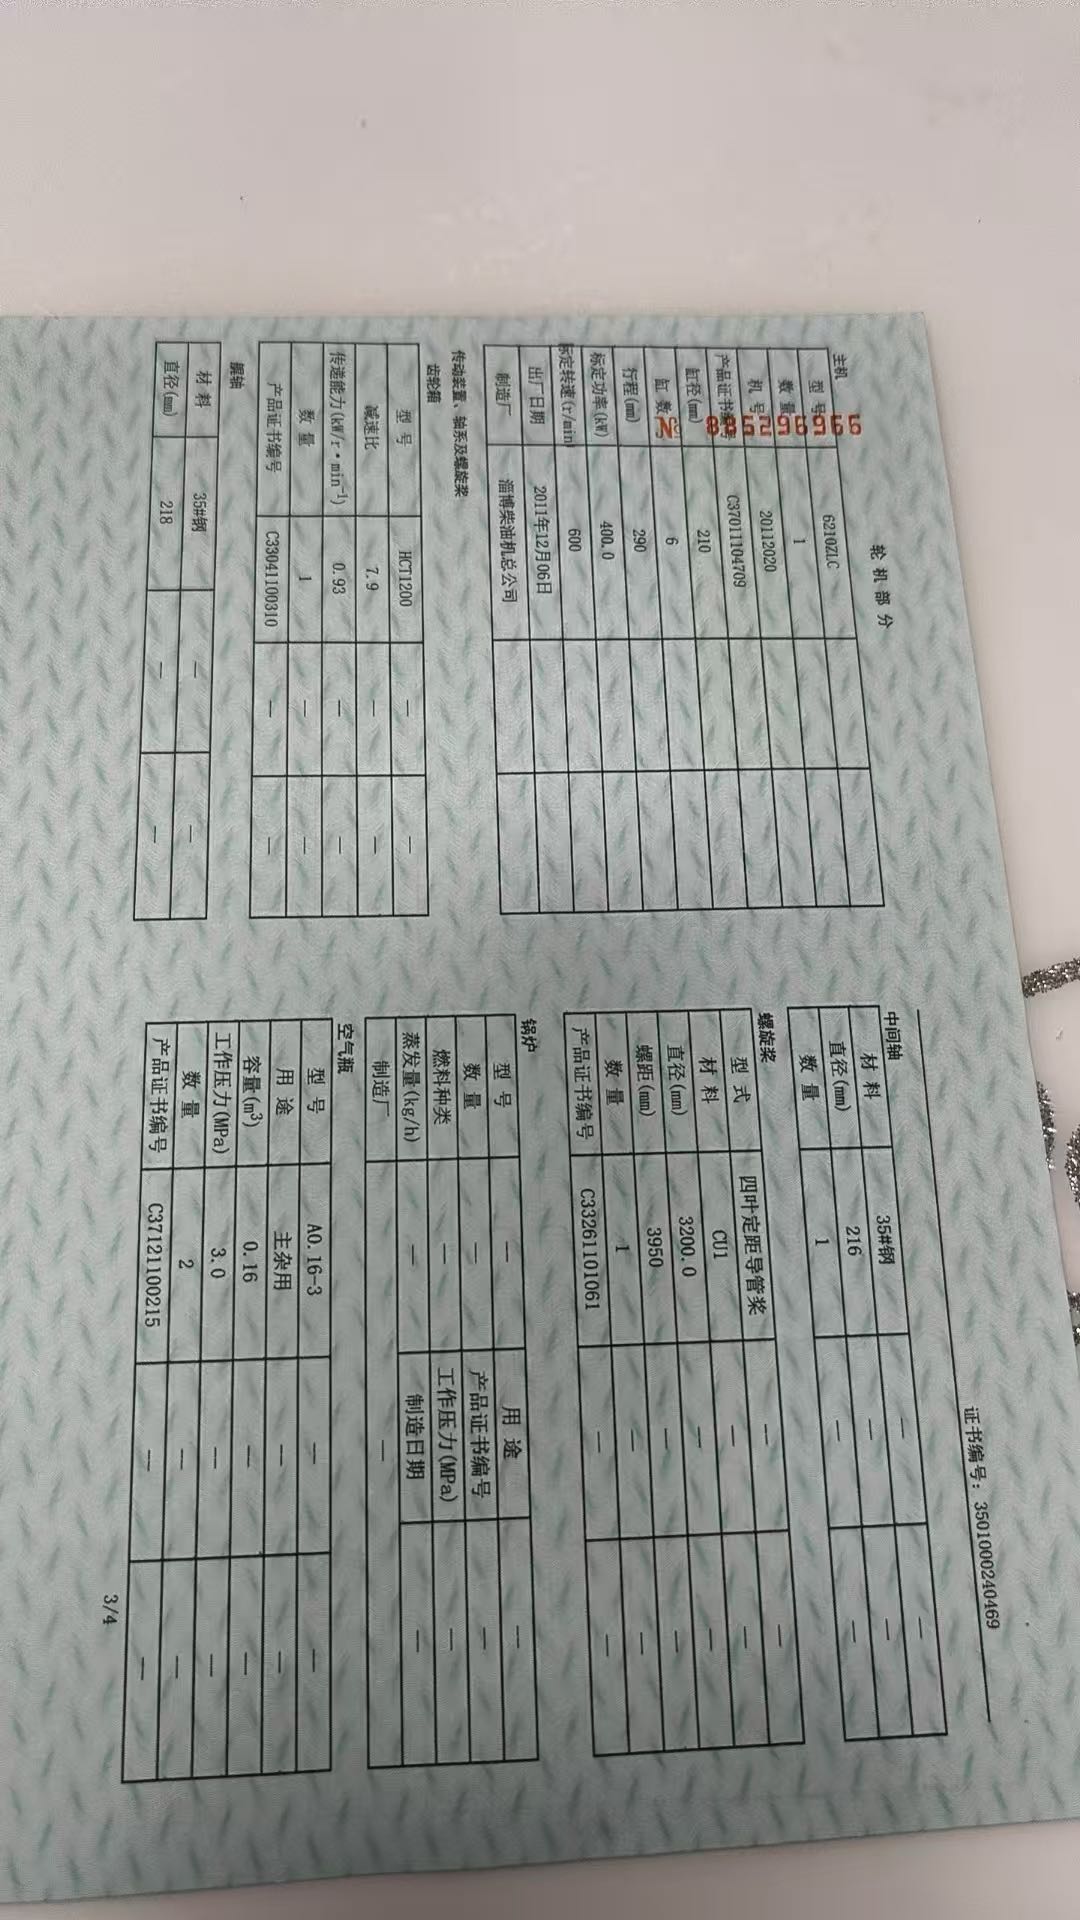 证书编号: 3501000240469
轮 机 部 分
主机
型 号 6210ZLC
数 量 1
机 号 20112020
产品证书编号 C37011104709
缸径(mm) 210
缸 数 6
行程(mm) 290
标定功率(kW) 400.0
标定转速(r/min) 600
出厂日期 2011年12月06日
制造厂 淄博柴油机总公司
传动装置、轴系及螺旋桨
齿轮箱
型 号 HCT1200 — —
减速比 7.9 — —
传递能力(kW/r·min⁻¹) 0.93 — —
数 量 1 — —
产品证书编号 C33041100310 — —
艉轴
材 料 35#钢 — —
直径(mm) 218 — —
中间轴
材 料 35#钢 — —
直径(mm) 216 — —
数 量 1 — —
螺旋桨
型 式 四叶定距导管桨 — —
材 料 CU1 — —
直径(mm) 3200.0 — —
螺距(mm) 3950 — —
数 量 1 — —
产品证书编号 C33261101061 — —
锅炉
型 号 — 用 途 —
数 量 — 产品证书编号 —
燃料种类 — 工作压力(MPa) —
蒸发量(kg/h) — 制造日期 —
制造厂 —
空气瓶
型 号 A0.16-3 — —
用 途 主杂用 — —
容量(m³) 0.16 — —
工作压力(MPa) 3.0 — —
数 量 2 — —
产品证书编号 C37121100215 — —
3/4